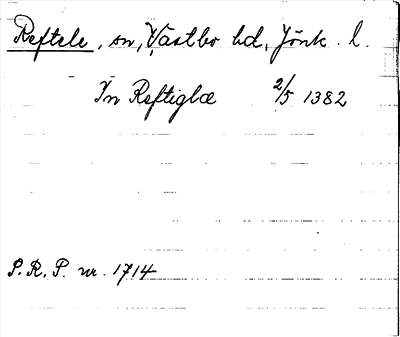 Reftele, sn, Västbo hd, Jönk. l.
In Reftiglæ 2/5 1382
P.R.P. nr. 1714